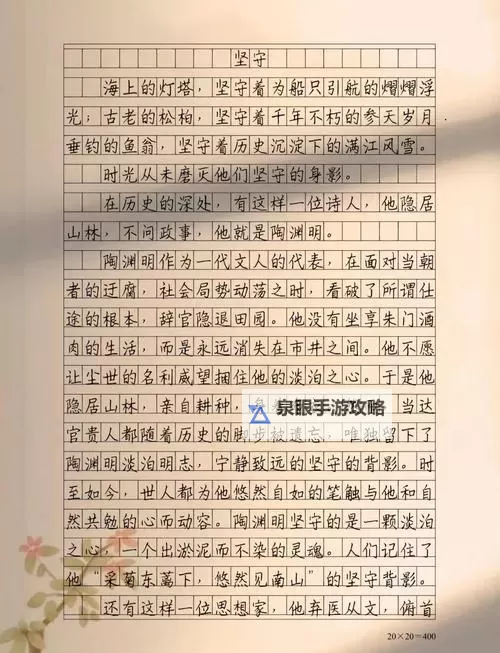 坚守
海上的灯塔，坚守着为船只引航的熠熠浮
光；古老的松柏，坚守着千年不朽的参天岁月.
垂钓的鱼翁，坚守着历史沉淀下的满江风雪。
时光从未磨灭他们坚守的身影。
在历史的深处，有这样一位诗人，他隐居
山林，不问政事，他就是陶渊明。
陶渊明作为一代文人的代表，在面对当朝
者的迂腐，社会局势动荡之时，看破了所谓仕
途的根本，辞官隐退田园。他没有坐享朱门酒
肉的生活，而是永远消失在市井之间。他不愿
让尘世的名利威望捆住他的淡泊之心。于是他
隐居山林，亲自耕种，当达
泉眼手游攻略
官贵人都随着历史的脚步被遗忘，唯独留下了
陶渊明淡泊明志，宁静致远的坚守的背影。时
至如今，世人都为他悠然自如的笔触与他和自
然共勉的心而动容。陶渊明坚守的是一颗淡泊
之心，一个出淤泥而不染的灵魂。人们记住了
他“采菊东篱下，悠然见南山”的坚守背影。
还有这样一位思想家，他弃医从文，俯首
20×20=400